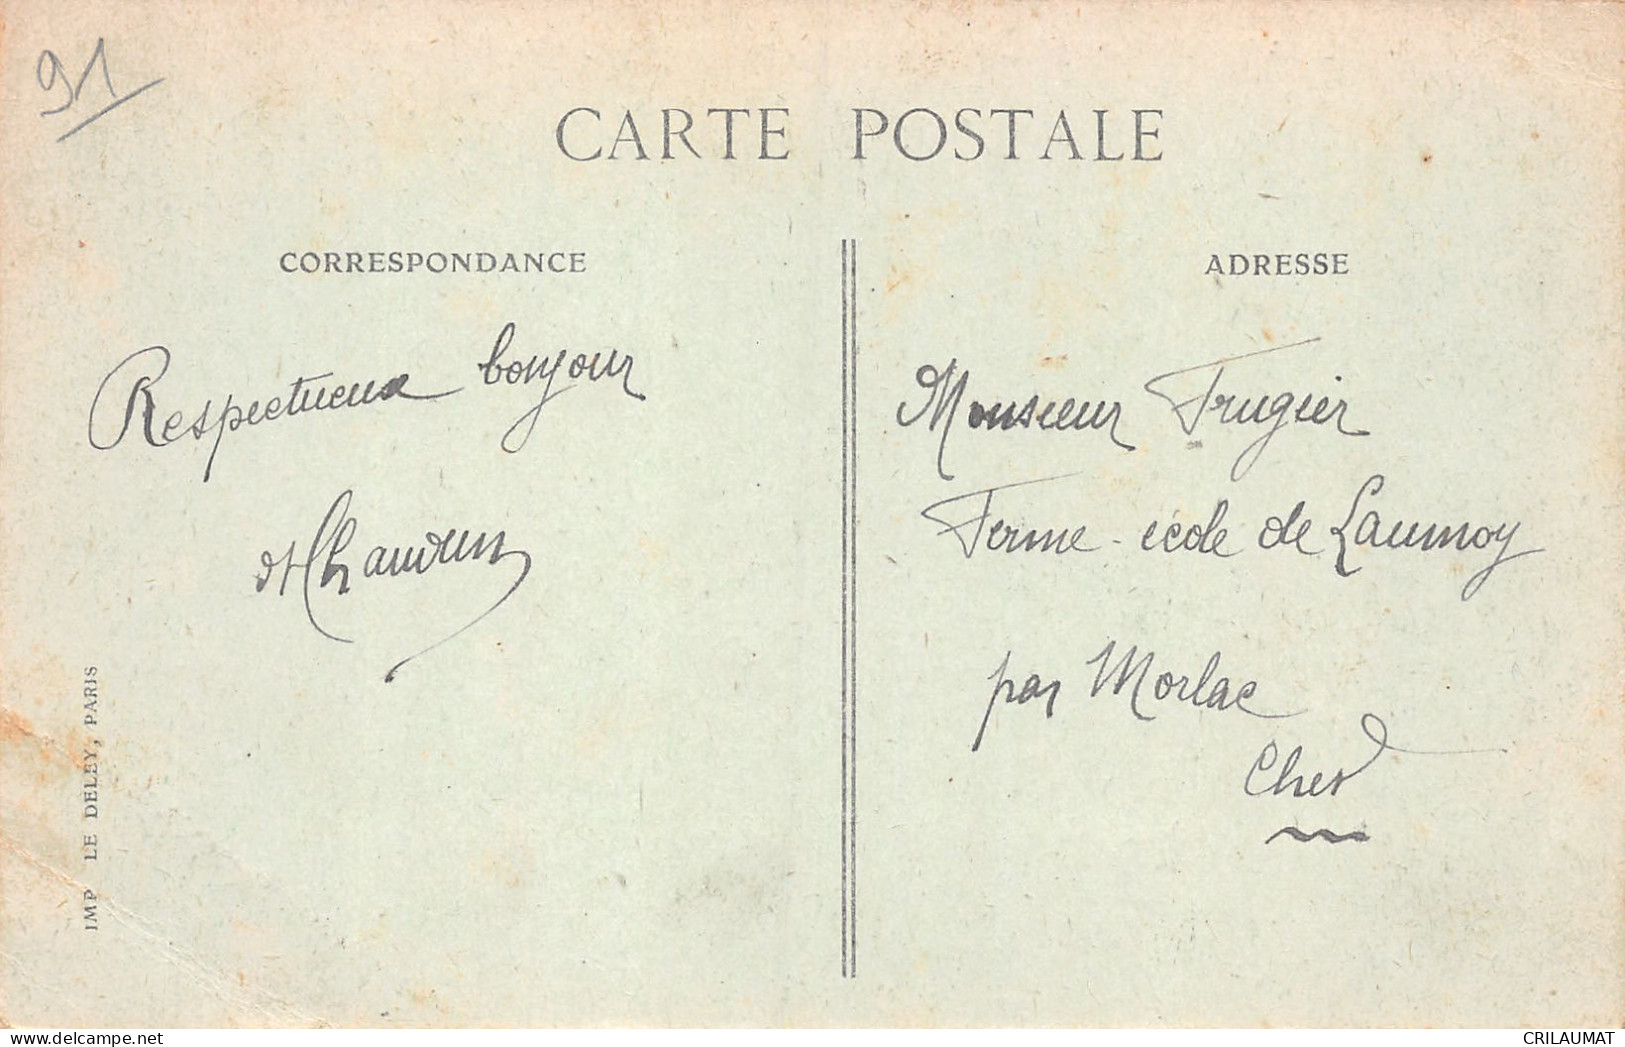 91
CARTE POSTALE
CORRESPONDANCE
Respectueux bonjour
ADRESSE
Monsieur Frugier
Ferme-école de Launoy
par Morlac
Cher
IMP LE DELEY, PARIS
delcampe.net
CRILAUMAT